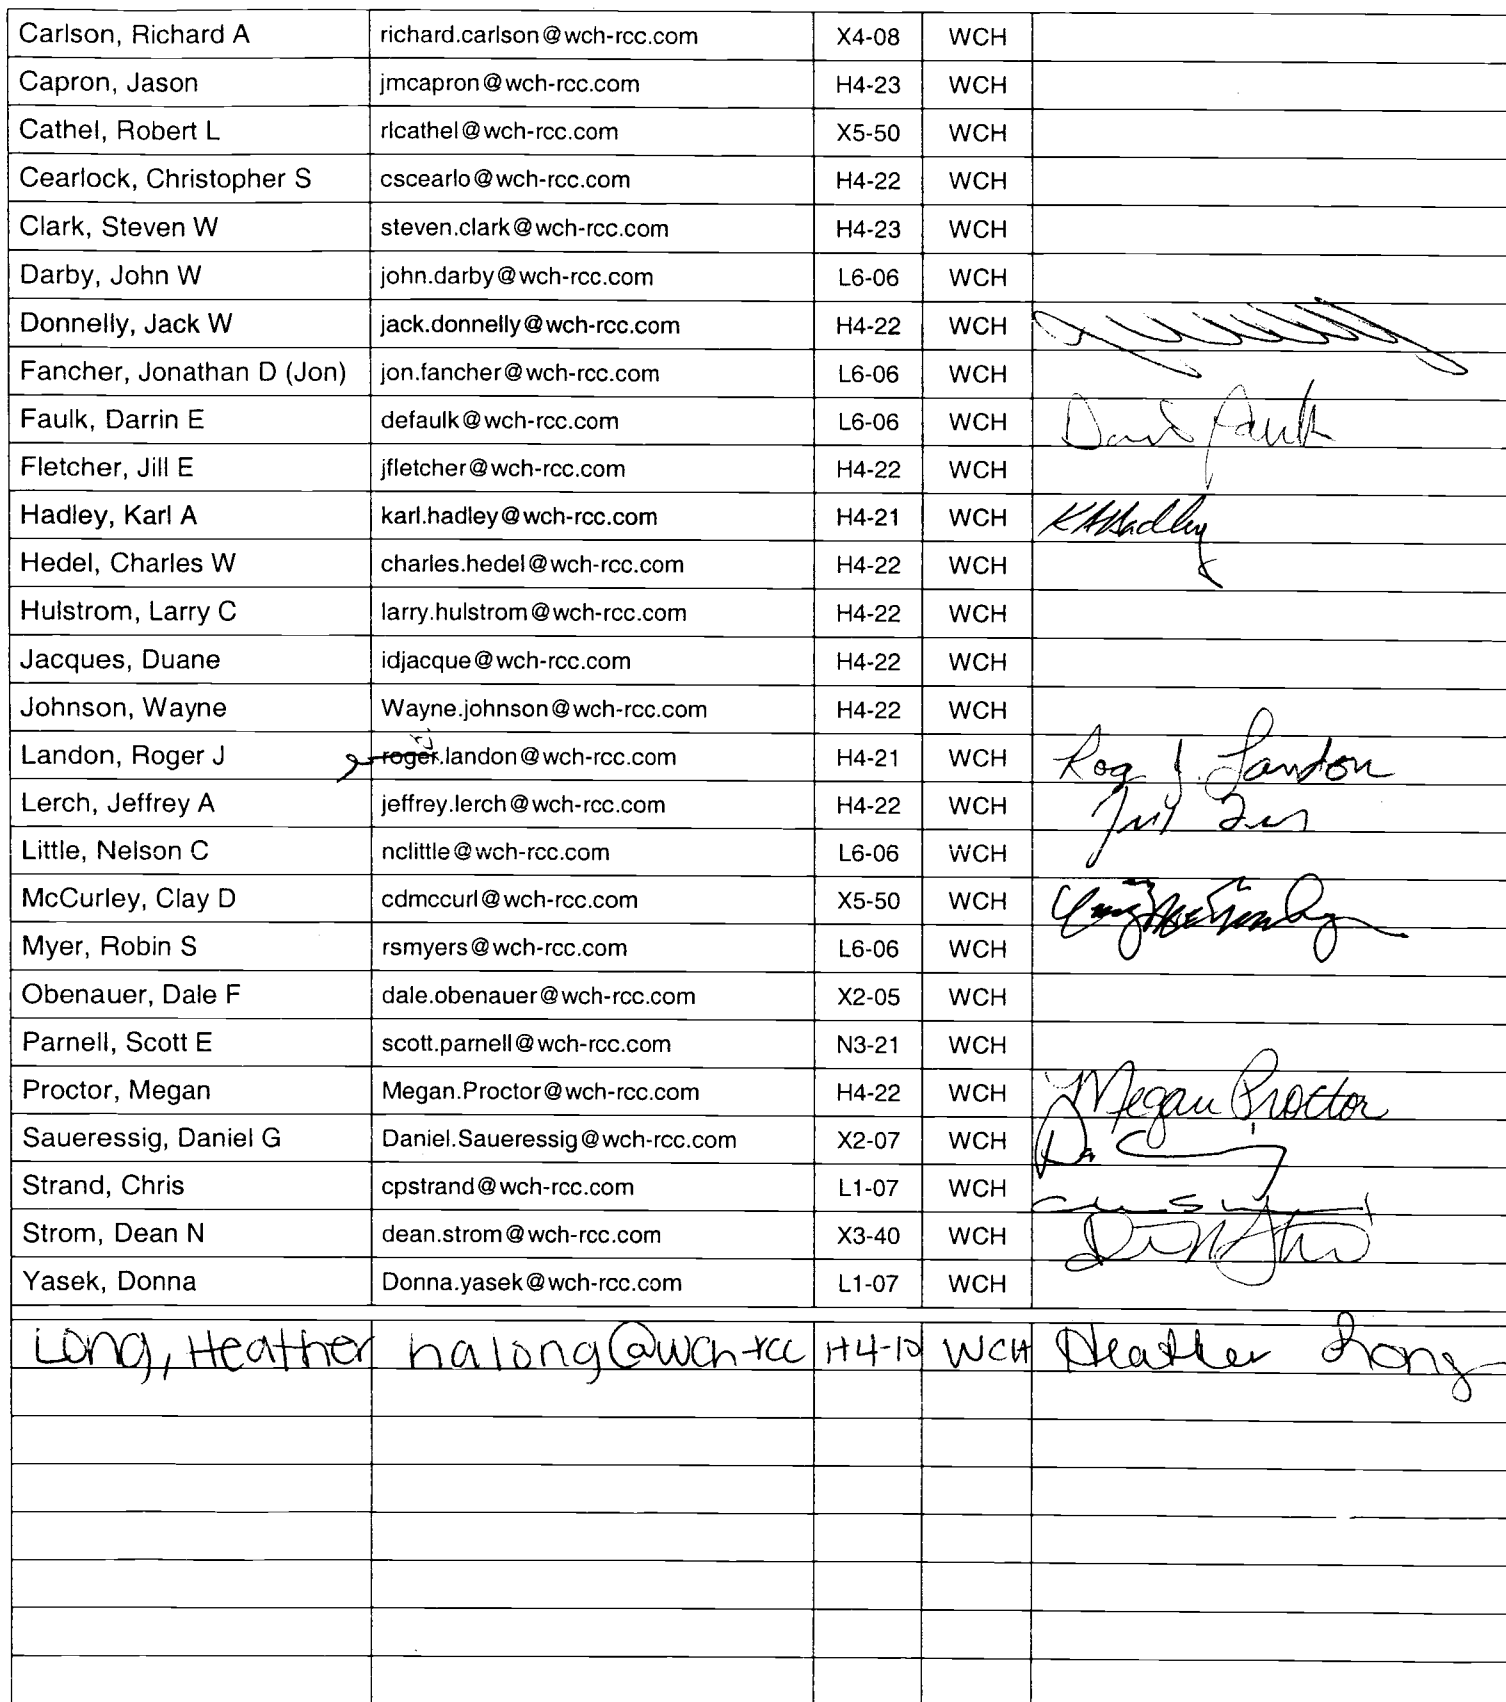 Carlson, Richard A richard.carlson@wch-rcc.com X4-08 WCH
Capron, Jason jmcapron@wch-rcc.com H4-23 WCH
Cathel, Robert L rlcathel@wch-rcc.com X5-50 WCH
Cearlock, Christopher S cscearlo@wch-rcc.com H4-22 WCH
Clark, Steven W steven.clark@wch-rcc.com H4-23 WCH
Darby, John W john.darby@wch-rcc.com L6-06 WCH
Donnelly, Jack W jack.donnelly@wch-rcc.com H4-22 WCH
Fancher, Jonathan D (Jon) jon.fancher@wch-rcc.com L6-06 WCH
Faulk, Darrin E defaulk@wch-rcc.com L6-06 WCH
Fletcher, Jill E jfletcher@wch-rcc.com H4-22 WCH
Hadley, Karl A karl.hadley@wch-rcc.com H4-21 WCH KAHadley
Hedel, Charles W charles.hedel@wch-rcc.com H4-22 WCH
Hulstrom, Larry C larry.hulstrom@wch-rcc.com H4-22 WCH
Jacques, Duane idjacque@wch-rcc.com H4-22 WCH
Johnson, Wayne Wayne.johnson@wch-rcc.com H4-22 WCH
Landon, Roger J roger.landon@wch-rcc.com H4-21 WCH Rog J. Landon
Lerch, Jeffrey A jeffrey.lerch@wch-rcc.com H4-22 WCH
Little, Nelson C nclittle@wch-rcc.com L6-06 WCH
McCurley, Clay D cdmccurl@wch-rcc.com X5-50 WCH
Myer, Robin S rsmyers@wch-rcc.com L6-06 WCH
Obenauer, Dale F dale.obenauer@wch-rcc.com X2-05 WCH
Parnell, Scott E scott.parnell@wch-rcc.com N3-21 WCH
Proctor, Megan Megan.Proctor@wch-rcc.com H4-22 WCH Megan Proctor
Saueressig, Daniel G Daniel.Saueressig@wch-rcc.com X2-07 WCH
Strand, Chris cpstrand@wch-rcc.com L1-07 WCH
Strom, Dean N dean.strom@wch-rcc.com X3-40 WCH
Yasek, Donna Donna.yasek@wch-rcc.com L1-07 WCH
Long, Heather halong@wch-rcc H4-10 WCH Heather Long